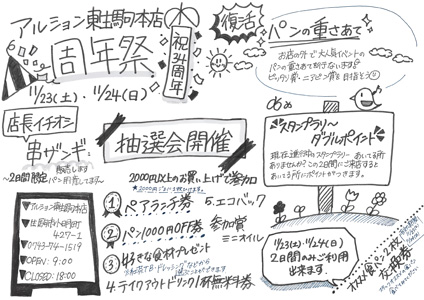 アルション東生駒本店
周年祭
祝34周年
11/23(土)・11/24(日)
復活
パンの重さあて
お店の外で大人気イベントの
パンの重さあて
ピッタリ賞・ニアピン賞を目指そう
店長イチオシ
串ザンギ
販売します
〜2日間限定
抽選会開催
2000円以上のお買い上げで参加
① ペアランチ券
② パン1000円OFF券
③ 好きな食材プレゼント
4. テイクアウトドリンク1杯無料券
5. エコバック
参加賞
ミニオイル
スタンプラリー
ダブルポイント
現在進行中のスタンプラリー あいてる所
ありませんか？この2日間にご来店すると
あいてる所にポイントがつきます。
▼アルション東生駒本店
427-1
▼0743-74-1519
▼OPEN: 9:00
▼CLOSED: 18:00
11/23(土)・11/24(日)
2日間のみご利用
出来ます。
オススメ食パン2枚
交換券